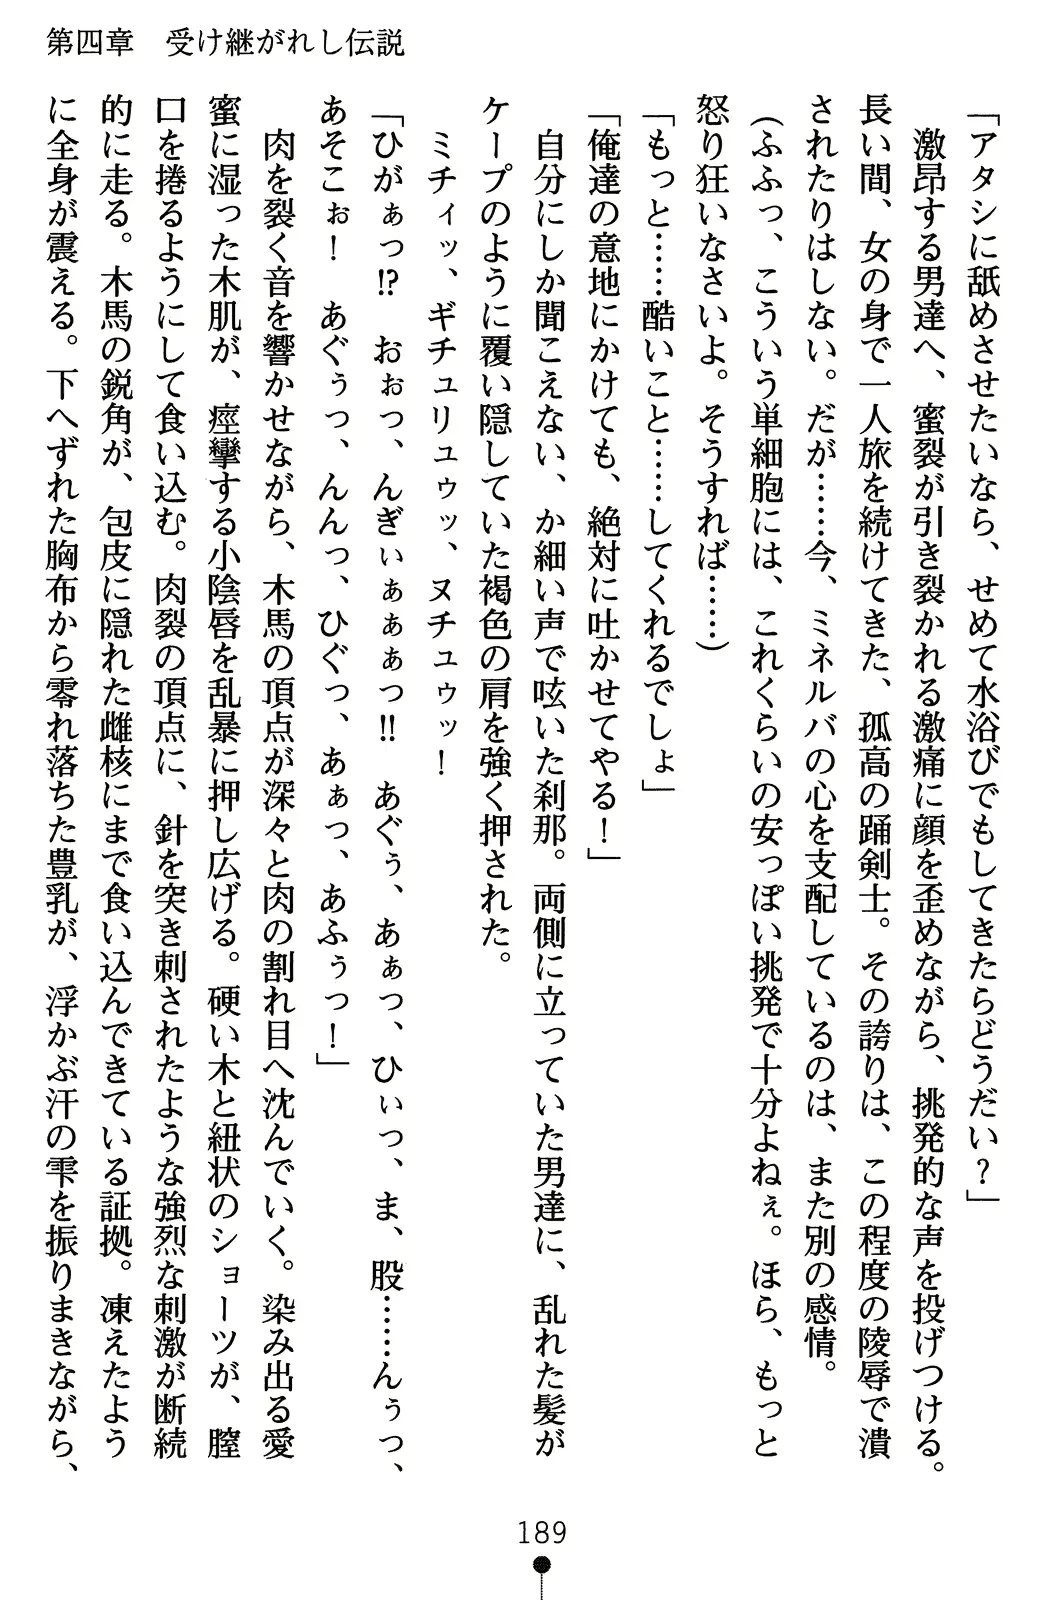 第四章　受け継がれし伝説
「アタシに舐めさせたいなら、せめて水浴びでもしてきたらどうだい？」
　激昂する男達へ、蜜裂が引き裂かれる激痛に顔を歪めながら、挑発的な声を投げつける。
長い間、女の身で一人旅を続けてきた、孤高の踊剣士。その誇りは、この程度の陵辱で潰
されたりはしない。だが……今、ミネルバの心を支配しているのは、また別の感情。
（ふふっ、こういう単細胞には、これくらいの安っぽい挑発で十分よねぇ。ほら、もっと
怒り狂いなさいよ。そうすれば……）
「もっと……酷いこと……してくれるでしょ」
「俺達の意地にかけても、絶対に吐かせてやる！」
　自分にしか聞こえない、か細い声で呟いた刹那。両側に立っていた男達に、乱れた髪が
ケープのように覆い隠していた褐色の肩を強く押された。
　ミチィッ、ギチュリュゥッ、ヌチュゥッ！
「ひがぁっ!?　おぉっ、んぎぃぁぁぁっ!!　あぐぅ、あぁっ、ひぃっ、ま、股……んぅっ、
あそこぉ！　あぐぅっ、んんっ、ひぐっ、あぁっ、あふぅっ！」
　肉を裂く音を響かせながら、木馬の頂点が深々と肉の割れ目へ沈んでいく。染み出る愛
蜜に湿った木肌が、痙攣する小陰唇を乱暴に押し広げる。硬い木と紐状のショーツが、膣
口を捲るようにして食い込む。肉裂の頂点に、針を突き刺されたような強烈な刺激が断続
的に走る。木馬の鋭角が、包皮に隠れた雌核にまで食い込んできている証拠。凍えたよう
に全身が震える。下へずれた胸布から零れ落ちた豊乳が、浮かぶ汗の雫を振りまきながら、
189